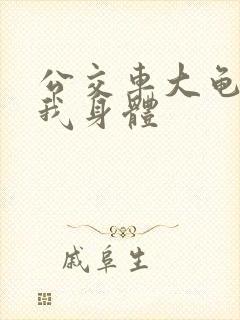 公交车大龟
我身體
戚阜生